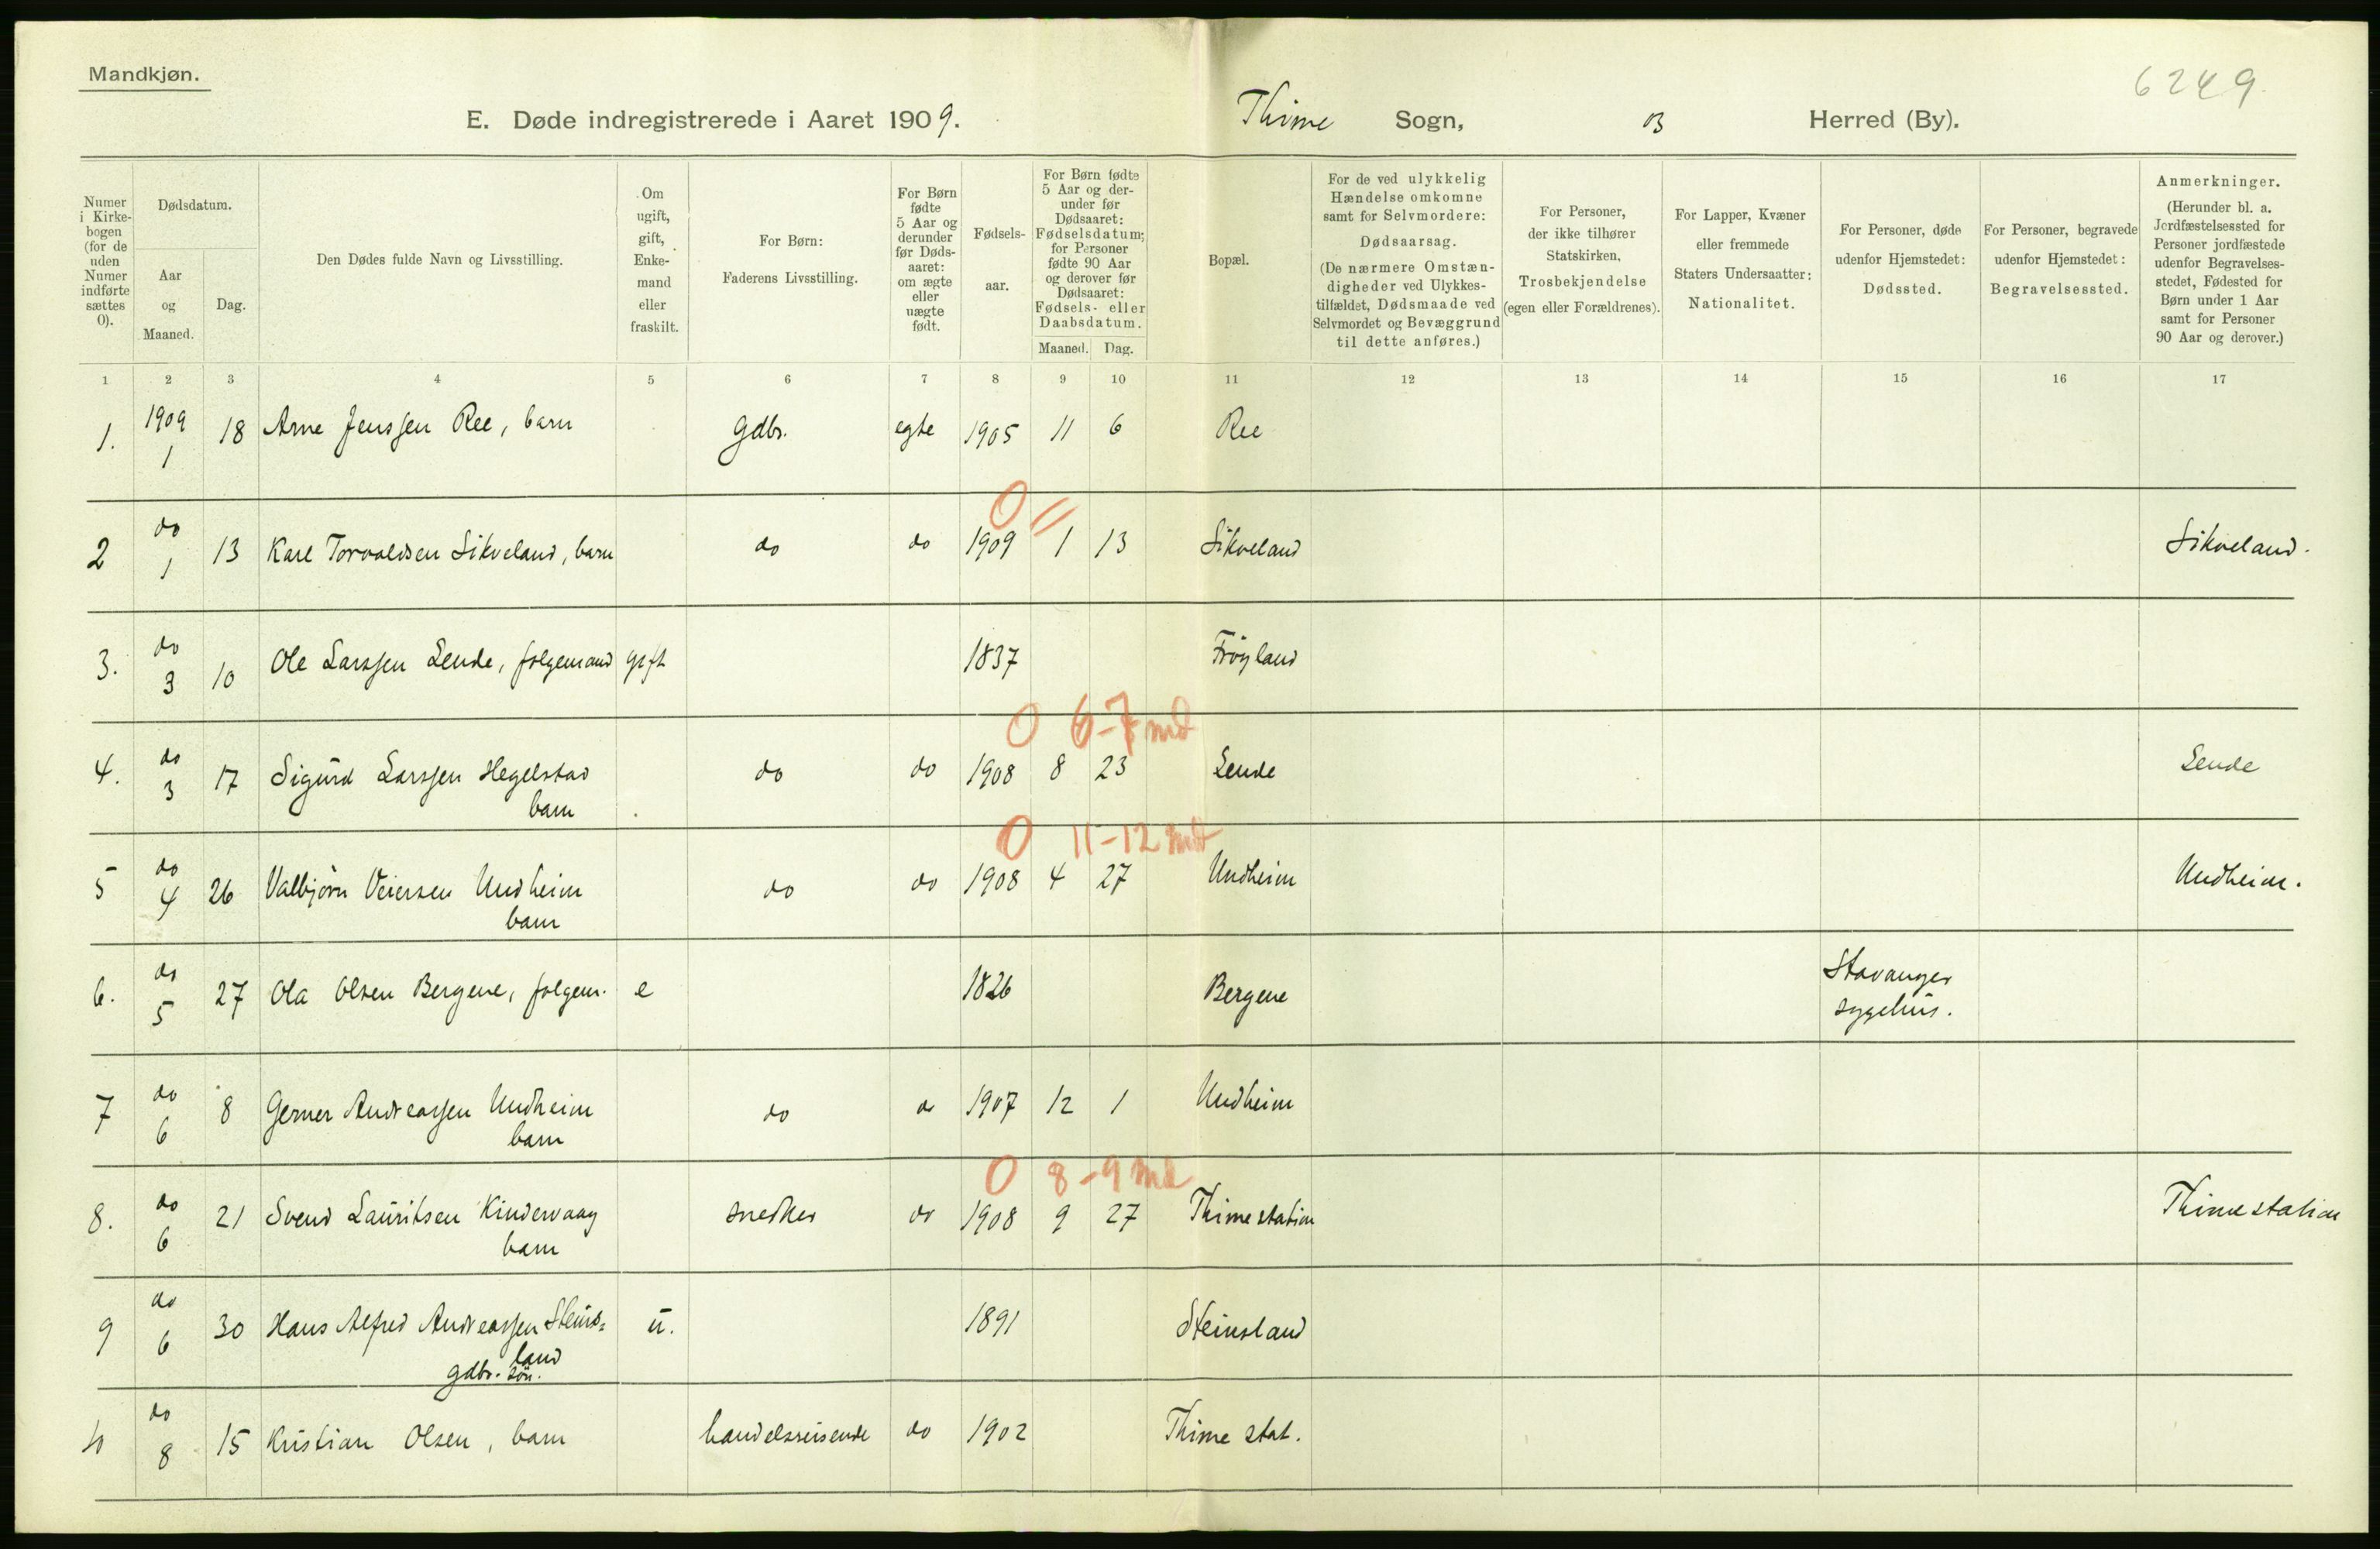 Mandkjøn.
6249.
E. Døde indregistrerede i Aaret 1909. Thime Sogn, Herred (By).
Numer i Kirke-bogen (for de uden Numer indførte sættes 0).
Dødsdatum.
Aar og Maaned.
Dag.
Den Dødes fulde Navn og Livsstilling.
Om ugift, gift, Enke-mand eller fraskilt.
For Børn: Faderens Livsstilling.
For Børn fødte 5 Aar og derunder før Døds-aaret: om ægte eller uægte født.
Fødsels-aar.
For Børn fødte 5 Aar og der-under før Dødsaaret: Fødselsdatum; for Personer fødte 90 Aar og derover før Dødsaaret: Fødsels- eller Daabsdatum.
Maaned. Dag.
Bopæl.
For de ved ulykkelig Hændelse omkomne samt for Selvmordere: Dødsaarsag. (De nærmere Omstæn-digheder ved Ulykkes-tilfældet, Dødsmaade ved Selvmordet og Bevæggrund til dette anføres.)
For Personer, der ikke tilhører Statskirken, Trosbekjendelse (egen eller Forældrenes).
For Lapper, Kvæner eller fremmede Staters Undersaatter: Nationalitet.
For Personer, døde udenfor Hjemstedet: Dødssted.
For Personer, begravede udenfor Hjemstedet: Begravelsessted.
Anmerkninger. (Herunder bl. a. Jordfæstelsessted for Personer jordfæstede udenfor Begravelses-stedet, Fødested for Børn under 1 Aar samt for Personer 90 Aar og derover.)
1 2 3 4 5 6 7 8 9 10 11 12 13 14 15 16 17
1. 1909 1 18 Arne Jenssen Ree, barn gdbr. egte 1905 11 6 Ree
0 11
2 do 1 13 Karl Torvaldsen Sikveland, barn do do 1909 1 13 Sikveland Sikveland.
3. do 3 10 Ole Larssen Lende, folgemand gift 1837 Frøyland
0 6-7 md
4. do 3 17 Sigurd Larssen Hegelstad do do 1908 8 23 Lende Lende
barn
0 11-12 md
5 do 4 26 Valbjørn Veiersen Undheim do do 1908 4 27 Undheim Undheim.
barn
6. do 5 27 Ola Olsen Bergene, folgem. e 1826 Bergene Stavanger
sygehus.
7 do 6 8 Gerner Andreassen Undheim do do 1907 12 1 Undheim
barn
0 8-9 md
8. do 6 21 Svend Lauritsen Kindervaag snedker do 1908 9 27 Thime station Thime station
barn
9 do 6 30 Hans Alfred Andreassen Steins= u. 1891 Steinsland
land
gdbr. søn.
10 do 8 15 Kristian Olsen, barn handelsreisende do 1902 Thime stat.